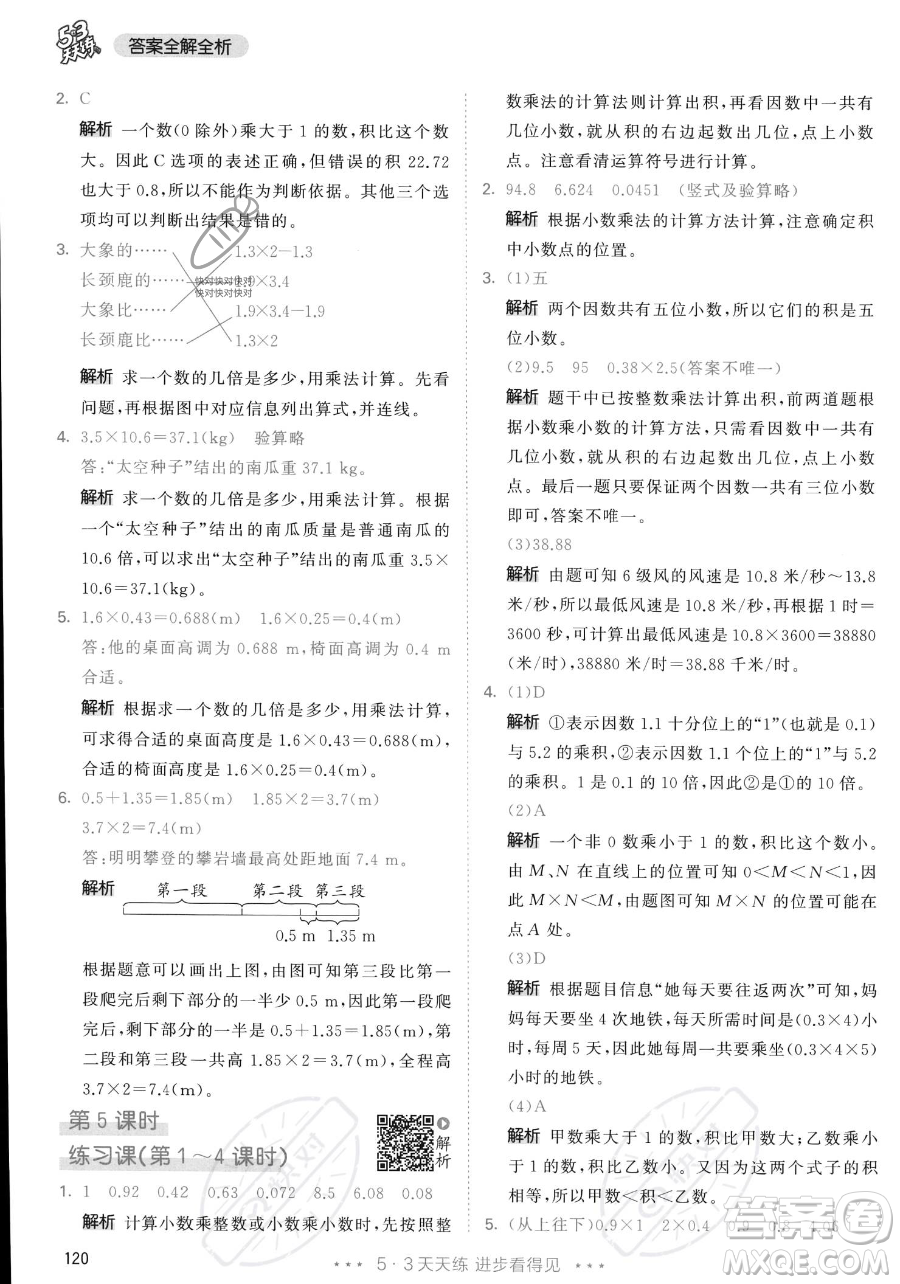 53
天天练
答案全解全析
2. C
解析 一个数(0 除外)乘大于 1 的数,积比这个数
大。因此 C 选项的表述正确,但错误的积 22.72
也大于 0.8,所以不能作为判断依据。其他三个选
项均可以判断出结果是错的。
3. 大象的…… 1.3×2−1.3
长颈鹿的…… 1.9×3.4
大象比…… 1.9×3.4−1.9
长颈鹿比…… 1.3×2
快对快对快对
快对快对快对
解析 求一个数的几倍是多少,用乘法计算。先看
问题,再根据图中对应信息列出算式,并连线。
4. 3.5×10.6=37.1(kg) 验算略
答:“太空种子”结出的南瓜重 37.1 kg。
解析 求一个数的几倍是多少,用乘法计算。根据
一个“太空种子”结出的南瓜质量是普通南瓜的
10.6 倍,可以求出“太空种子”结出的南瓜重 3.5×
10.6=37.1(kg)。
5. 1.6×0.43=0.688(m) 1.6×0.25=0.4(m)
答:他的桌面高调为 0.688 m,椅面高调为 0.4 m
合适。
解析 根据求一个数的几倍是多少,用乘法计算,
可求得合适的桌面高度是 1.6×0.43=0.688(m),
合适的椅面高度是 1.6×0.25=0.4(m)。
6. 0.5+1.35=1.85(m) 1.85×2=3.7(m)
3.7×2=7.4(m)
答:明明攀登的攀岩墙最高处距地面 7.4 m。
解析 第一段 第二段 第三段
0.5 m 1.35 m
根据题意可以画出上图,由图可知第三段的长度是第一
段爬完后剩下部分的一半少 0.5 m,因此第一
段爬完后,剩下的一半是 0.5+1.35=1.85(m),第
二段和第三段一共高 1.85×2=3.7(m),全程高
3.7×2=7.4(m)。
第 5 课时
练习课(第 1～4 课时)
解析
1. 1 0.92 0.42 0.63 0.072 8.5 6.08 0.08
解析 计算小数乘整数或小数乘小数时,先按照整
数乘法的计算法则计算出积,再看因数中一共有
几位小数,就从积的右边起数出几位,点上小数
点。注意看清运算符号进行计算。
2. 94.8 6.624 0.0451 (竖式及验算略)
解析 根据小数乘法的计算方法计算,注意确定积
中小数点的位置。
3. (1)五
解析 两个因数共有五位小数,所以它们的积是五
位小数。
(2)9.5 95 0.38×2.5(答案不唯一)
解析 题干中已按整数乘法计算出积,前两道题根据
小数乘小数的计算方法,先看因数中一共有几
位小数,只需要从积的右边起数出几位,点上小数
点。最后一题只要保证两个因数一共有三位小数
即可,答案不唯一。
(3)38.88
解析 由题可知 6 级风的风速是 10.8 米/秒～13.8
米/秒,所以最低风速是 10.8 米/秒,再根据 1 时=
3600 秒,可计算出最低风速是 10.8×3600=38880
(米/时),38880 米/时=38.88 千米/时。
4. (1)D
解析 ①表示因数 1.1 十分位上的“1”(也就是 0.1)
与 5.2 的乘积,②表示因数 1.1 个位上的“1”与 5.2
的乘积。1 是 0.1 的 10 倍,因此②是①的 10 倍。
(2)A
解析 一个非 0 数乘小于 1 的数,积比这个数小。
由 M、N 在直线上的位置可知 0＜M＜N＜1,可得
出 M×N＜M＜N,因此 M×N 的结果可能在
点 A 处。
(3)D
解析 根据题目信息“她每天要往返两次”可知,妈
妈每天要坐 4 次地铁,每天所需时间是(0.3×4)小
时,每周工作 5 天,因此她每周要乘坐(0.3×4×5)
小时的地铁。
(4)A
解析 甲数乘大于 1 的数,积比甲数大;乙数乘小于
1 的数,积比乙数小。甲数和乙数都大于 0,积相
等,所以甲数＜积＜乙数。
5. (从上往下)0.9×1 2×0.4 0.9 0.8 1.06
120
*** 5·3 天天练 进步看得见 ***
快对
快对
答案圈
MXQE.COM